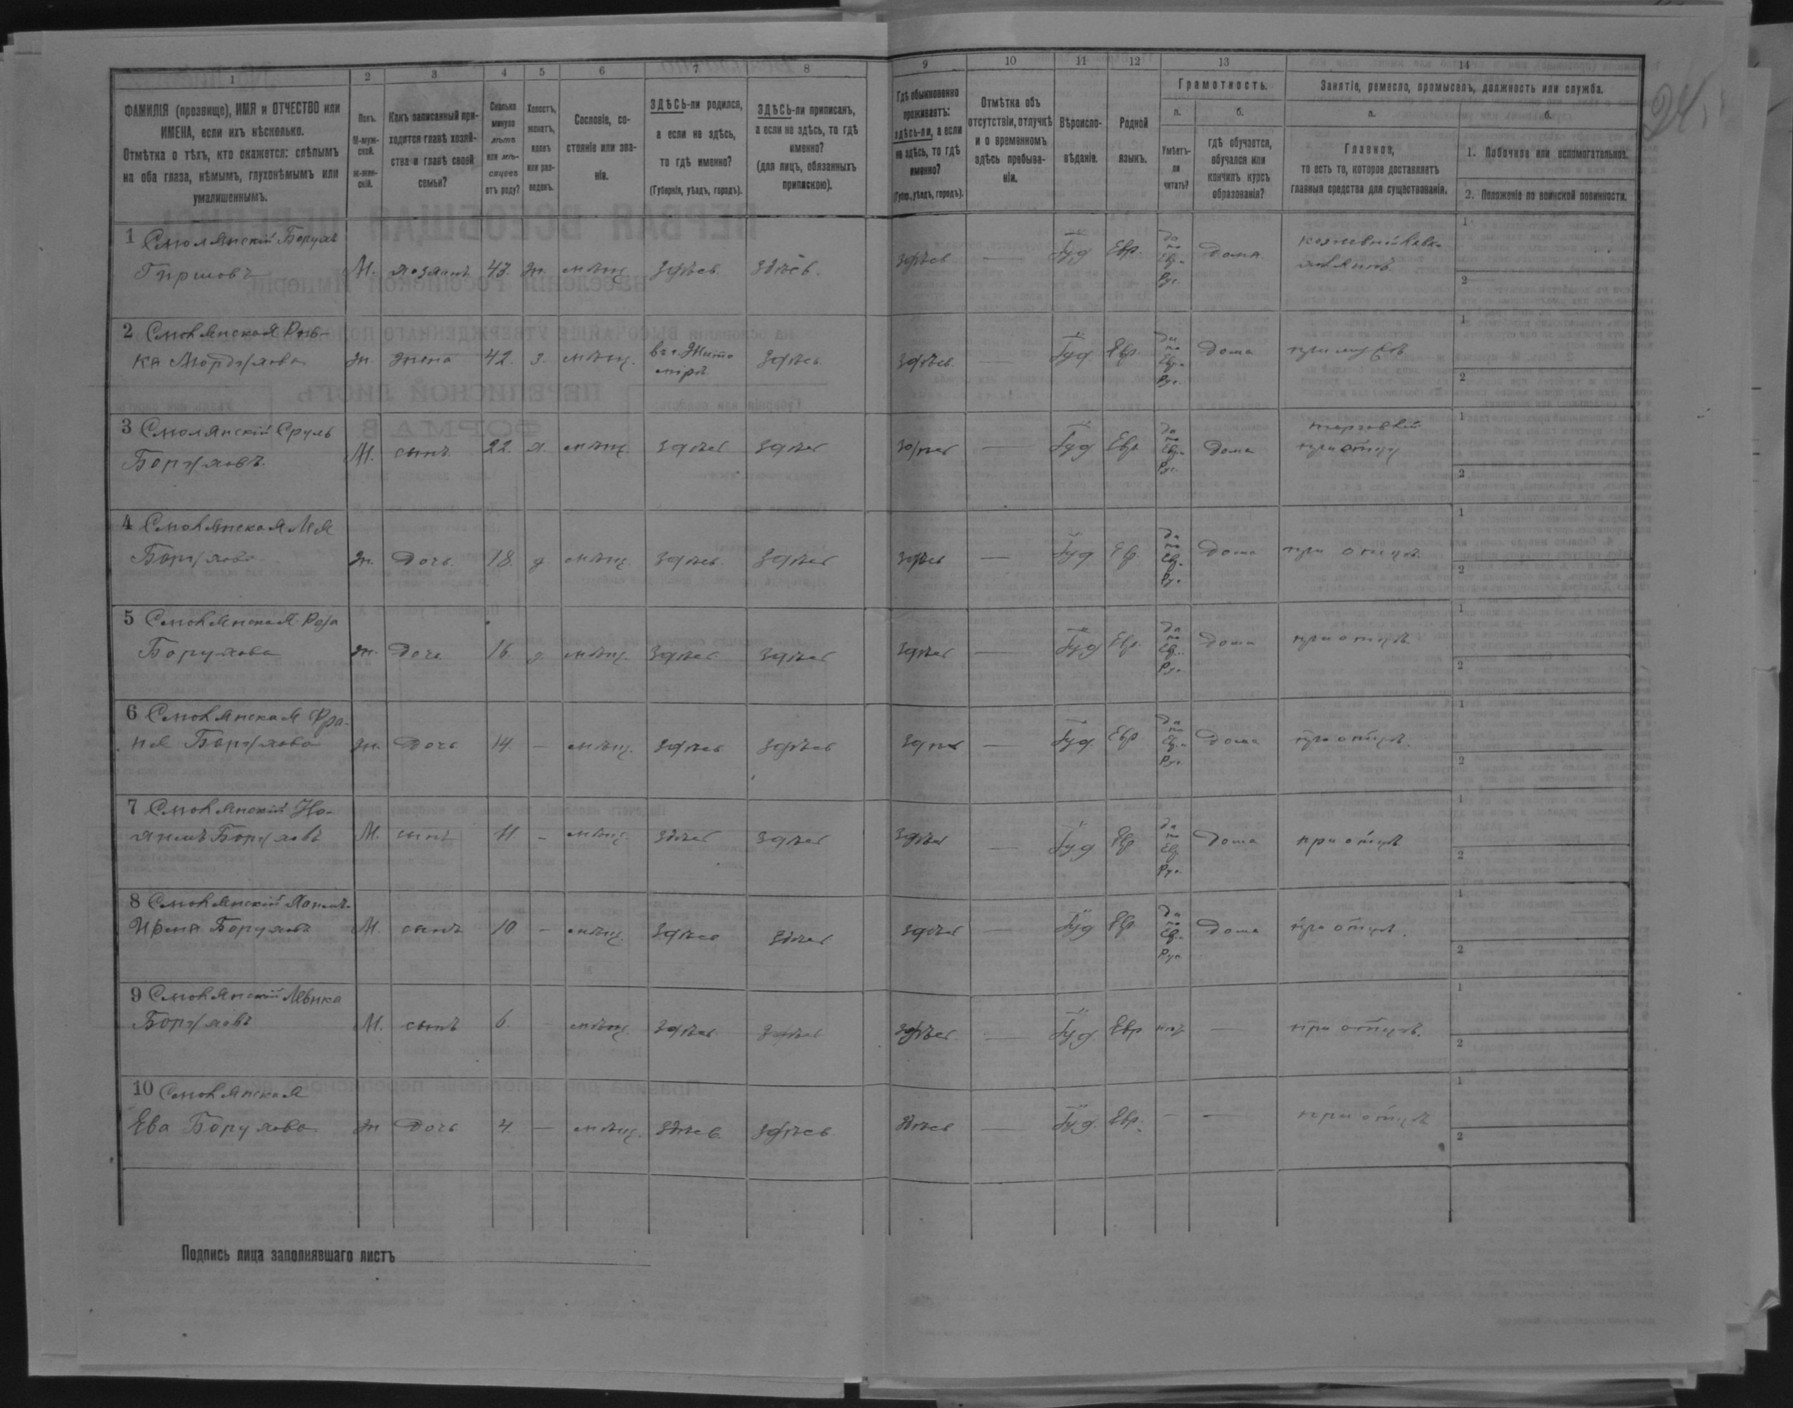 1 2 3 4 5 6 7 8 9 10 11 12 13 14
ФАМИЛІЯ (прозвище), ИМЯ и ОТЧЕСТВО или
ИМЕНА, если ихъ нѣсколько.
Отмѣтка о тѣхъ, кто окажется: слѣпымъ
на оба глаза, нѣмымъ, глухонѣмымъ или
умалишеннымъ.
Полъ.
М-муж-
ской.
Ж-жен-
скій.
Какъ записанный при-
ходится главѣ хозяй-
ства и главѣ своей
семьи?
Сколько
минуло
лѣтъ
или мѣ-
сяцевъ
отъ роду?
Холостъ,
женатъ,
вдовъ
или раз-
веденъ.
Сословіе, со-
стояніе или зва-
ніе.
ЗДѢСЬ-ли родился,
а если не здѣсь,
то гдѣ именно?
(Губернія, уѣздъ, городъ).
ЗДѢСЬ-ли приписанъ,
а если не здѣсь, то гдѣ
именно?
(для лицъ, обязанныхъ
припискою).
Гдѣ обыкновенно
проживаетъ:
здѣсь-ли, а если
не здѣсь, то гдѣ
именно?
(Губер., уѣздъ, городъ).
Отмѣтка объ
отсутствіи, отлучкѣ
и о временномъ
здѣсь пребыва-
ніи.
Вѣроиспо-
вѣданіе.
Родной
языкъ.
Грамотность.
а. б.
Умѣетъ-
ли
читать?
гдѣ обучается,
обучался или
кончилъ курсъ
образованія?
Занятіе, ремесло, промыселъ, должность или служба.
а. б.
Главное,
то есть то, которое доставляетъ
главныя средства для существованія.
1. Побочное или вспомогательное.
2. Положеніе по воинской повинности.
24
1 Смолянскій Борухъ
Гиршовъ М. хозяинъ 43 ж. мѣщ. здѣсь здѣсь. здѣсь — Іуд Евр. да по Евр. Рус. дома
2 Смолянская
Мордухова ж. жена 42 з. мѣщ. въ г. Жито
мірѣ здѣсь здѣсь Іуд Евр да по Евр. Рус. дома при мужѣ
3 Смолянскій Сруль
Боруховъ М. сынъ 22 х. мѣщ. здѣсь здѣсь здѣсь — Іуд Евр да по Евр. Рус. дома
торговлей
при отцѣ
4 Смолянская Лея
Борухова ж. дочь 18 д мѣщ. здѣсь здѣсь здѣсь — Іуд Евр да по Евр. Рус. дома при отцѣ
5 Смолянская Роза
Борухова ж. дочь 16 д мѣщ. здѣсь здѣсь здѣсь — Іуд Евр. да по Евр. Рус. дома при отцѣ
6 Смолянская
Борухова ж. дочь 14 — мѣщ. здѣсь здѣсь здѣсь — Іуд Евр да по Евр. Рус. дома при отцѣ.
7 Смолянскій
Боруховъ М. сынъ 11 — мѣщ. здѣсь здѣсь здѣсь — Іуд Евр да по Евр Рус. дома при отцѣ
8 Смолянскій
Боруховъ М. сынъ 10 — мѣщ. здѣсь здѣсь здѣсь — Іуд Евр да по Евр. Рус дома при отцѣ.
9 Смолянскій Левика
Боруховъ М. сынъ 6 — мѣщ. здѣсь здѣсь здѣсь — Іуд. Евр нѣтъ — при отцѣ.
10 Смолянская
Ева Борухова ж дочь 4 — мѣщ. здѣсь здѣсь здѣсь — Іуд. Евр. — — при отцѣ
Подпись лица заполнявшаго листъ